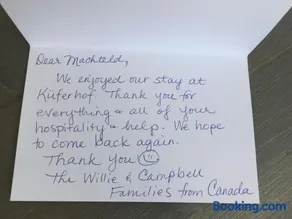 Dear Machteld,
We enjoyed our stay at
Küferhof Thank you for
everything & all of your
hospitality & help. We hope
to come back again.
Thank you
The Willie & Campbell
Families from Canada
Booking.com